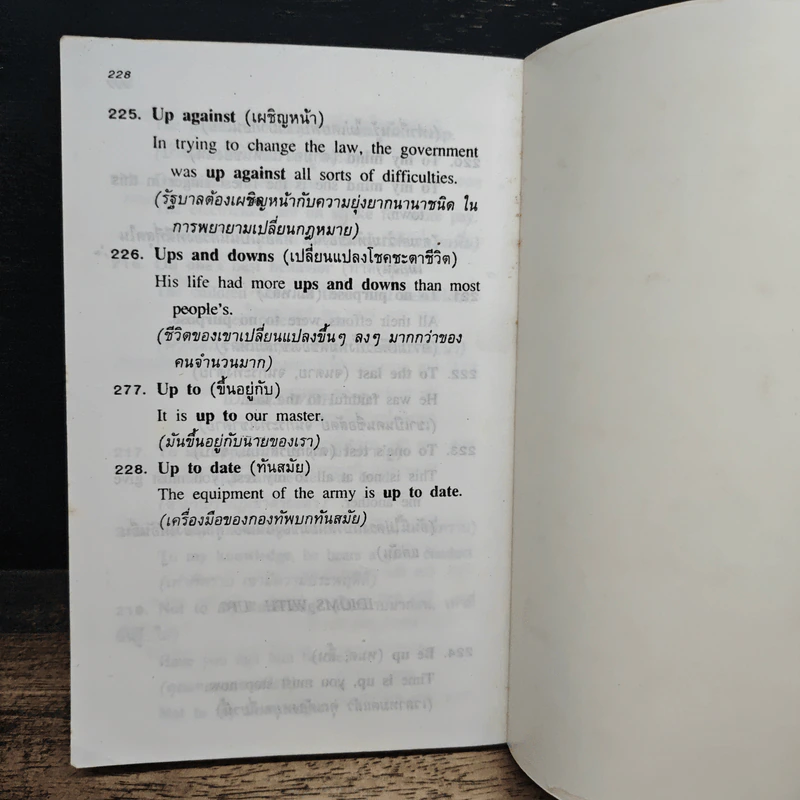 228
225. Up against (เผชิญหน้า)
In trying to change the law, the government
was up against all sorts of difficulties.
(รัฐบาลต้องเผชิญหน้ากับความยุ่งยากนานาชนิด ใน
การพยายามเปลี่ยนกฎหมาย)
226. Ups and downs (เปลี่ยนแปลงโชคชะตาชีวิต)
His life had more ups and downs than most
people's.
(ชีวิตของเขาเปลี่ยนแปลงขึ้นๆ ลงๆ มากกว่าของ
คนจำนวนมาก)
277. Up to (ขึ้นอยู่กับ)
It is up to our master.
(มันขึ้นอยู่กับนายของเรา)
228. Up to date (ทันสมัย)
The equipment of the army is up to date.
(เครื่องมือของกองทัพบกทันสมัย)